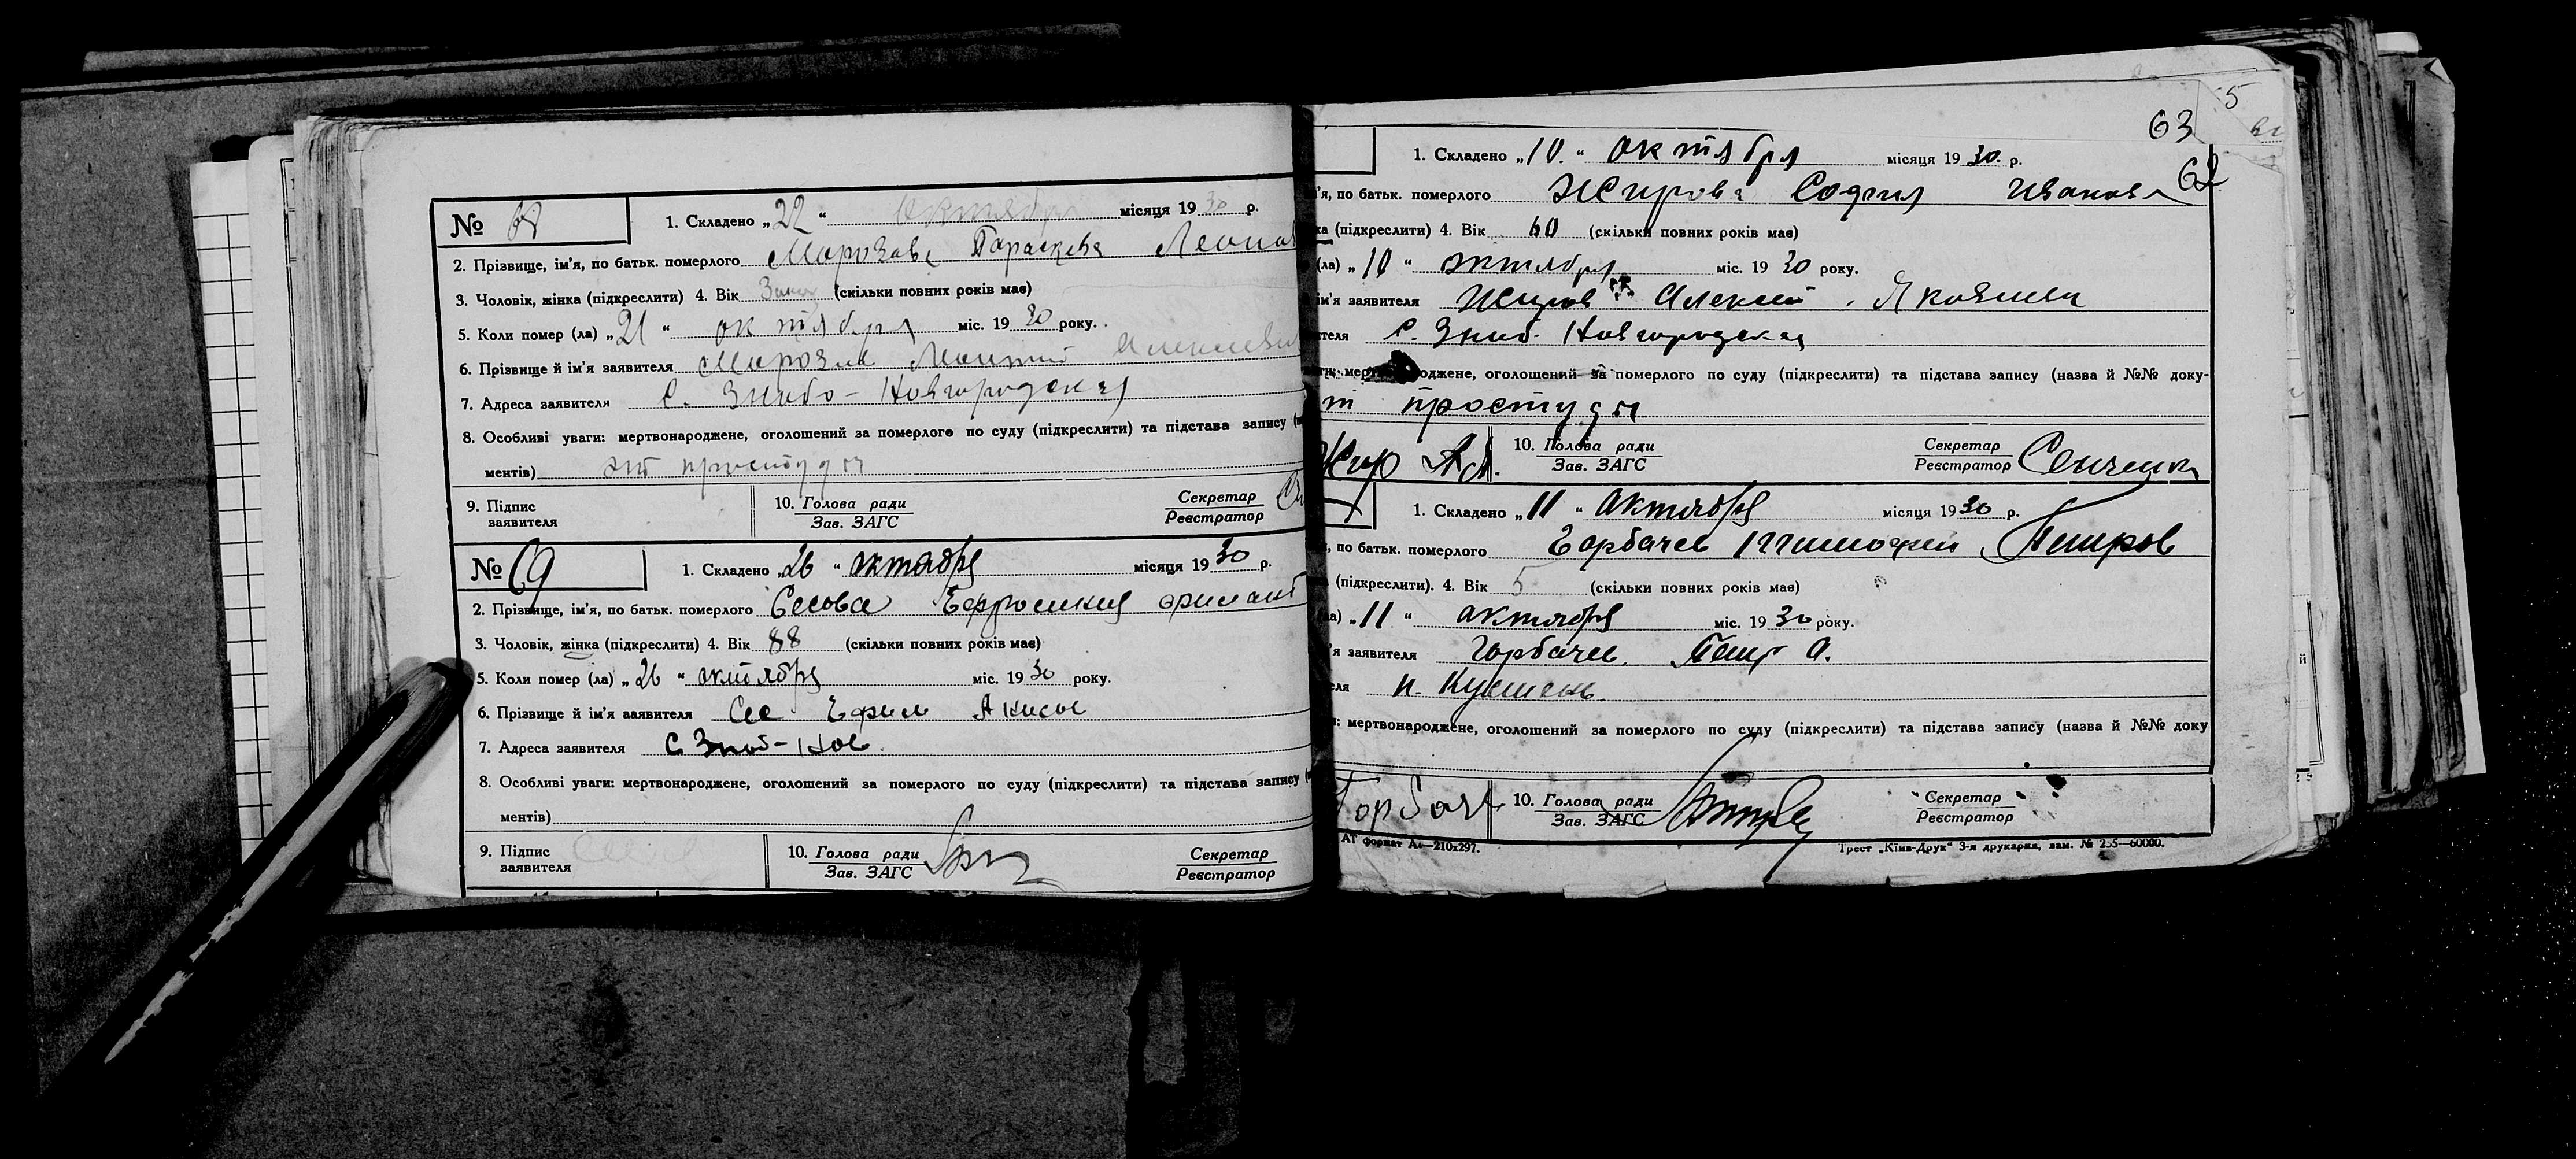 №
1. Складено „22" октября місяця 1930 р.
2. Прізвище, ім'я, по батьк. померлого Морозова Параскева
3. Чоловік, жінка (підкреслити) 4. Вік (скільки повних років має)
5. Коли помер (ла) „21" октября міс. 1930 року.
6. Прізвище й ім'я заявителя
7. Адреса заявителя С. Знобо-Новгородская
8. Особливі уваги: мертвонароджене, оголошений за померлого по суду (підкреслити) та підстава запису
ментів) от простуды
9. Підпис заявителя
10. Голова ради
Зав. ЗАГС
Секретар
Реєстратор
№ 69
1. Складено „26" октября місяця 1930 р.
2. Прізвище, ім'я, по батьк. померлого Сесова Ефросиния
3. Чоловік, жінка (підкреслити) 4. Вік 88 (скільки повних років має)
5. Коли помер (ла) „26" октября міс. 1930 року.
6. Прізвище й ім'я заявителя Ефим
7. Адреса заявителя С Зноб-Нов.
8. Особливі уваги: мертвонароджене, оголошений за померлого по суду (підкреслити) та підстава запису
ментів)
9. Підпис заявителя
10. Голова ради
Зав. ЗАГС
Секретар
Реєстратор
5
63
62
1. Складено „10." октября місяця 1930. р.
'я, по батьк. померлого Жирова София Иванова
ка (підкреслити) 4. Вік 60 (скільки повних років має)
(ла) „10" октября міс. 1930 року.
ім'я заявителя Жиров Алексей Яковлев
ителя С. Зноб. Новгородская
оджене, оголошений за померлого по суду (підкреслити) та підстава запису (назва й №№ доку-
т простуды
Жир Ал.
10. Голова ради
Зав. ЗАГС
Секретар
Реєстратор Сенченко
1. Складено „11" октября місяця 1930 р.
, по батьк. померлого Горбачев Тимофей Петров
(підкреслити). 4. Вік 5 (скільки повних років має)
ла) „11" октября міс. 1930 року.
'я заявителя Горбачев. Петр А.
еля
: мертвонароджене, оголошений за померлого по суду (підкреслити) та підстава запису (назва й №№ доку
Горбач
10. Голова ради
Зав. ЗАГС
Секретар
Реєстратор
АТ формат А4—210х297.
Трест „Київ-Друк" 3-я друкарня, зам. № 255—60000.